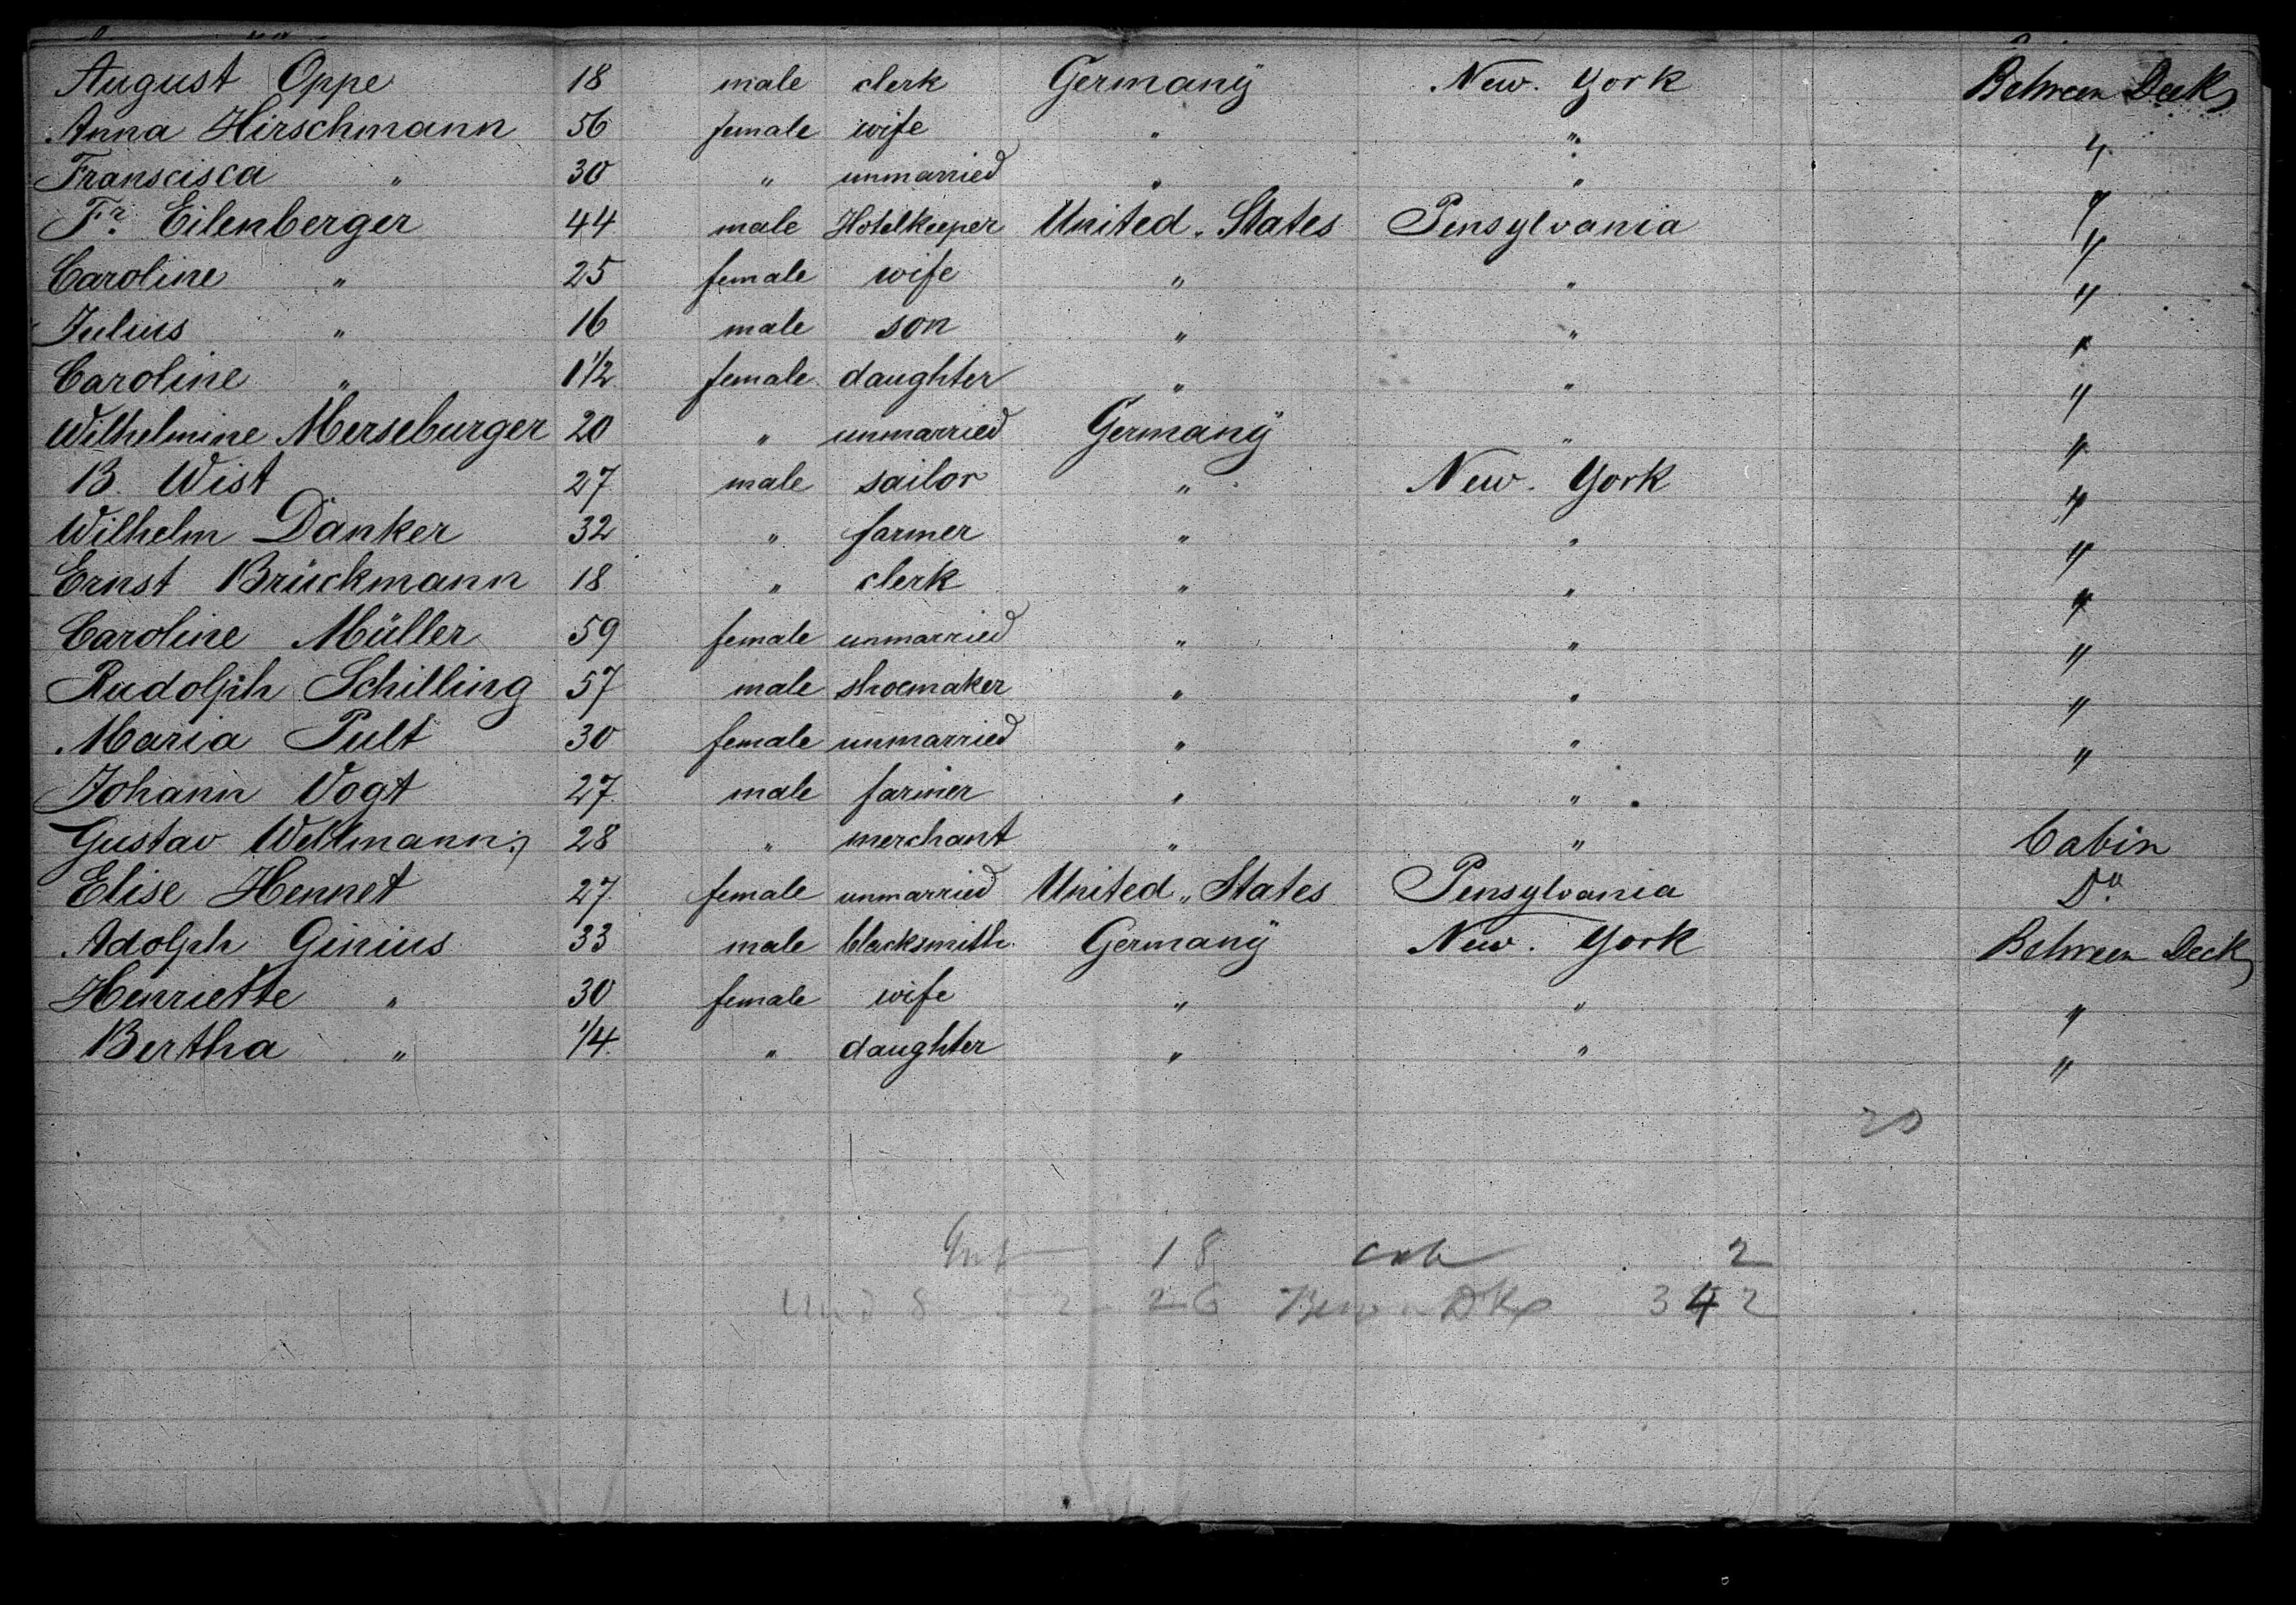 August Oppe 18 male clerk Germany New. York Between Decks
Anna Hirschmann 56 female wife " " "
Franscisca " 30 " unmarried " " "
Fr. Eilenberger 44 male Hotelkeeper United. States Pensylvania "
Caroline " 25 female wife " " "
Julius " 16 male son " " "
Caroline " 1 1/2 female daughter " " "
Wilhelmine Merseburger 20 " unmarried Germany " "
B. Wist 27 male sailor " New. York "
Wilhelm Danker 32 " farmer " " "
Ernst Brückmann 18 " clerk " " "
Caroline Müller 59 female unmarried " " "
Rudolph Schilling 57 male shoemaker " " "
Maria Pult 30 female unmarried " " "
Johann Vogt 27 male farmer " "
Gustav Wellmann 28 " merchant " " Cabin
Elise Hennet 27 female unmarried United " States Pensylvania Do.
Adolph Ginius 33 male blacksmith Germany New. York Between Decks
Henriette " 30 female wife " " "
Bertha " 1/4 " daughter " " "
20
18 cab 2
26 Dks 342